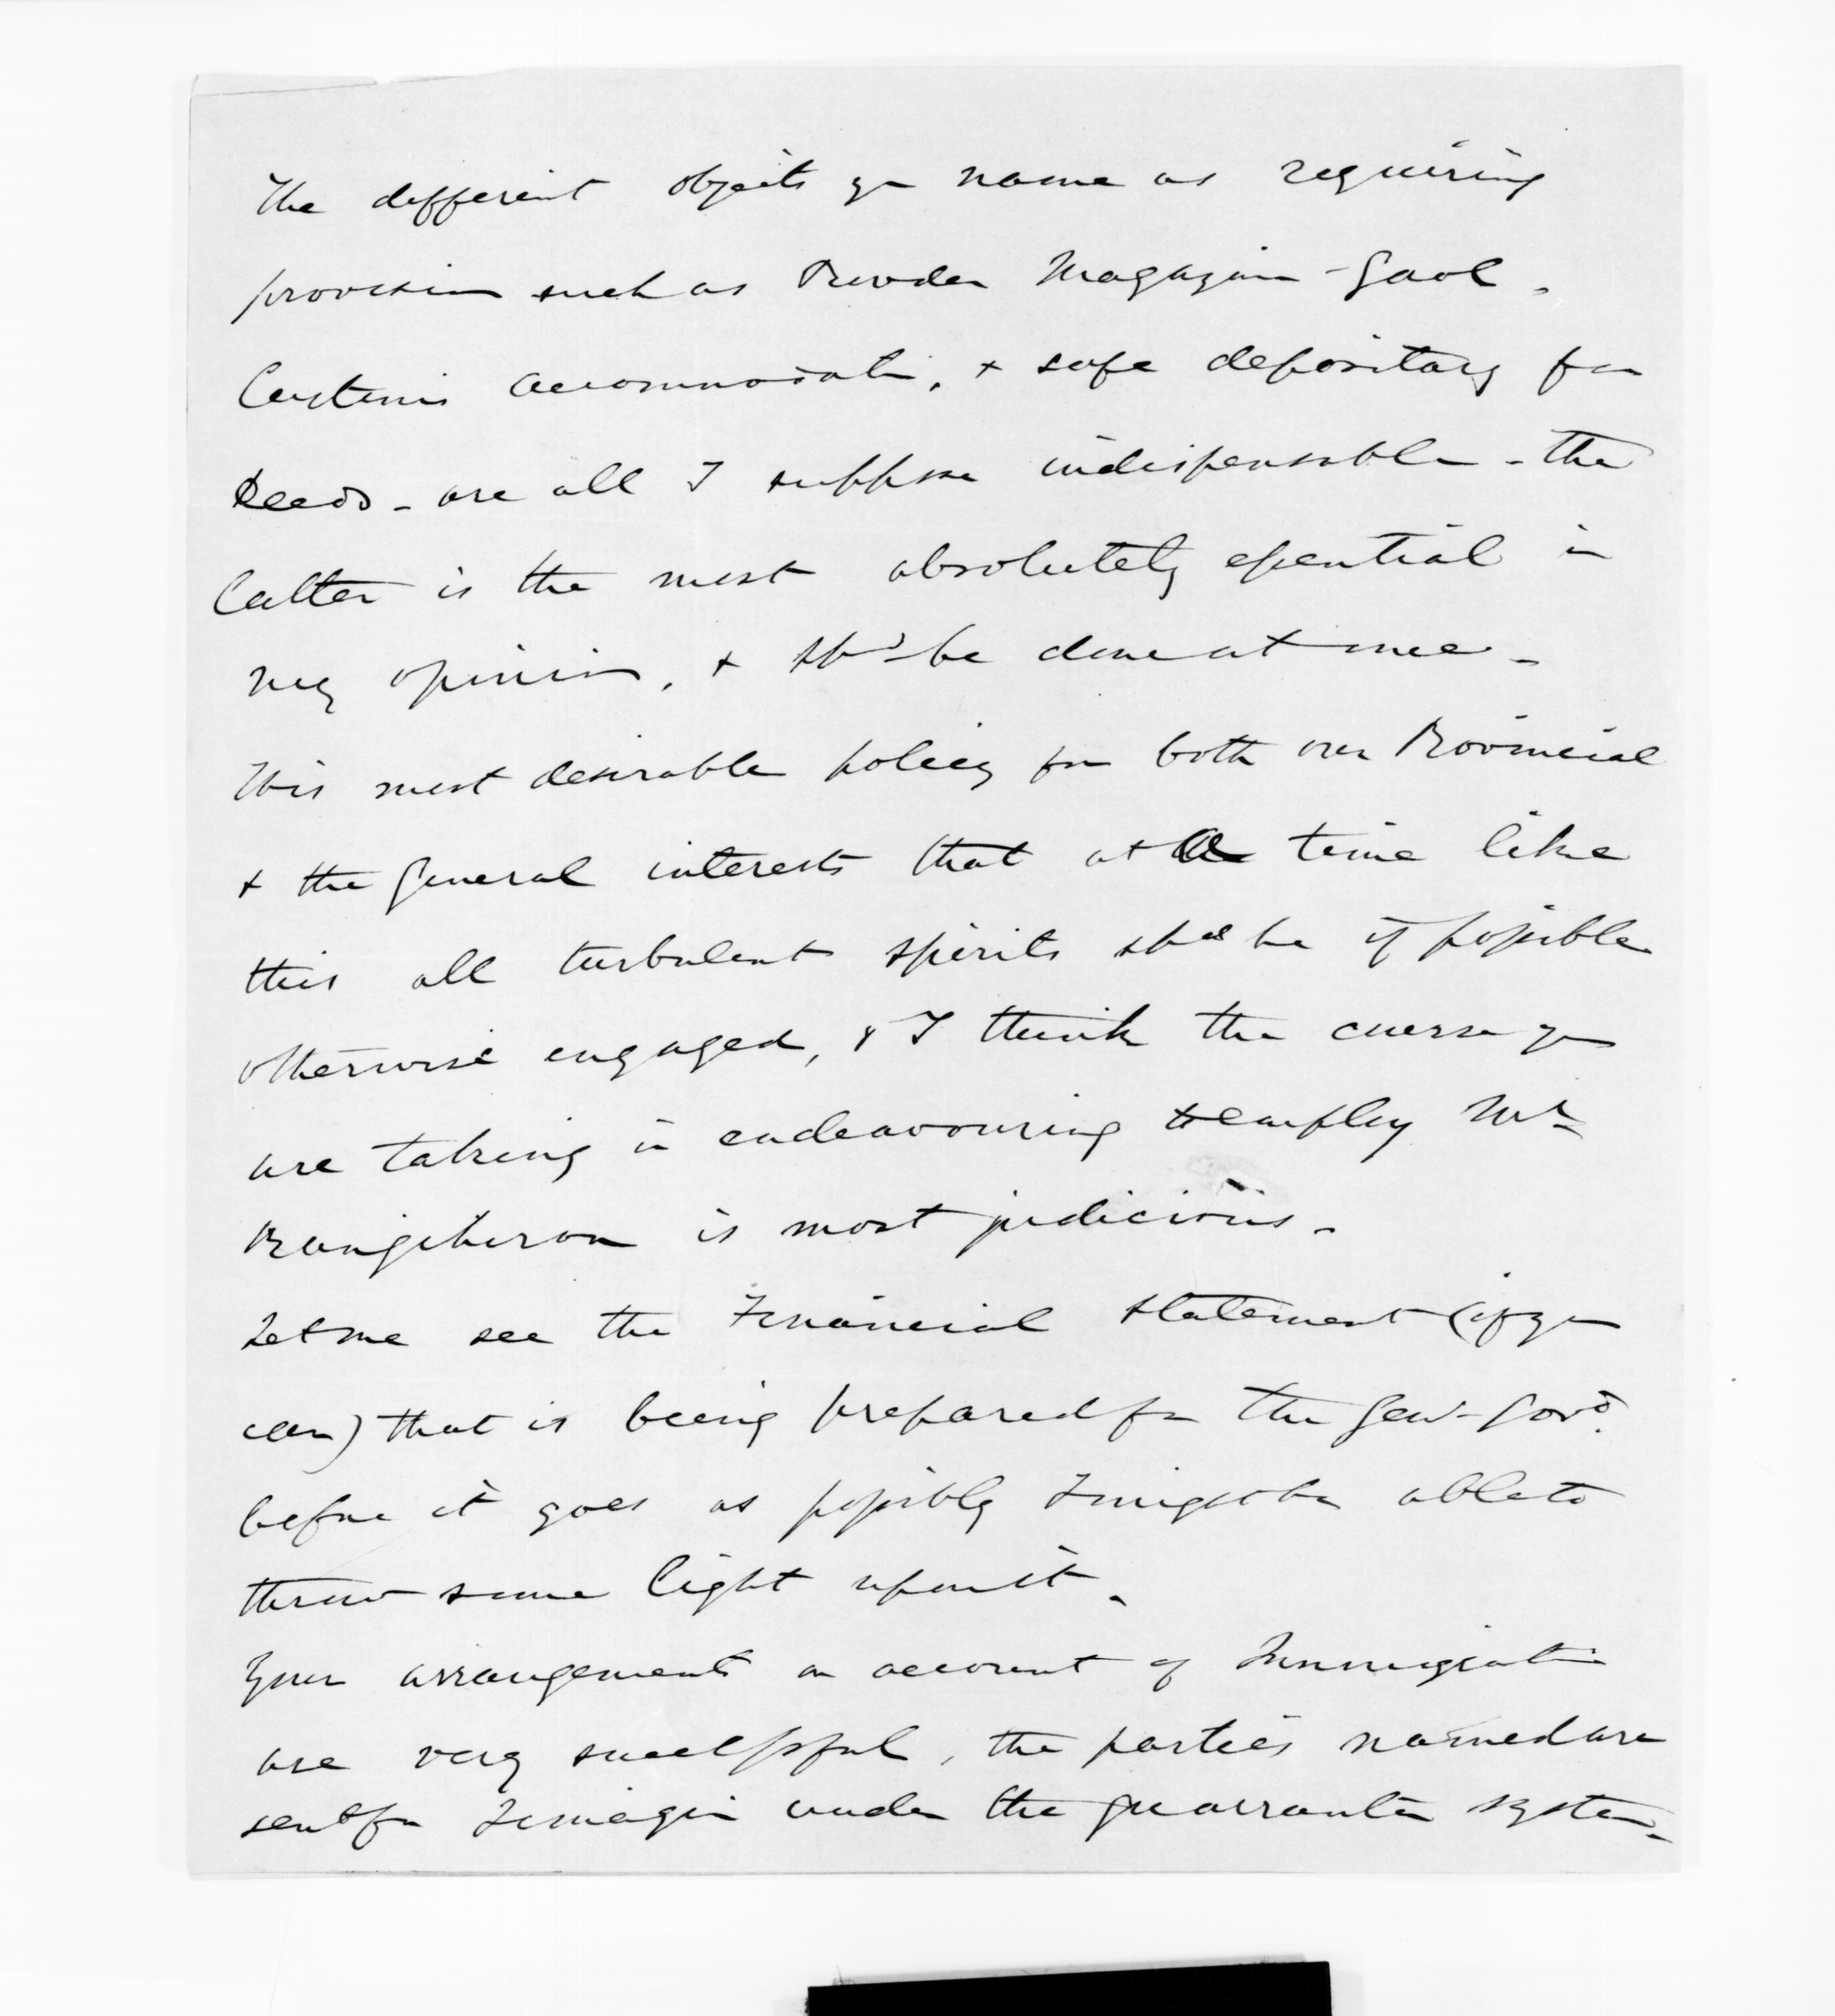 The different objects you name as requiring
provision such as Powder Magazine - Gaol -
Customs accommodation, + safe depositary for
Deeds - are all I suppose indispensable - the
latter is the most absolutely essential in
my opinion, + shd be done at once -
This most desirable policy for both our Provincial
+ the General interests that at a time like
this all turbulent spirits shd be if possible
otherwise engaged, & I think the course you
are taking in endeavouring to employ Mr
Rangiheroa is most judicious -
Let me see the Financial statement (if you
can) that is being prepared for the Genl Govt.
before it goes as possibly I might be able to
throw some light upon it -
Your arrangements on account of Immigration
are very successful, the parties named are
sent for I imagine under the guarrantee system -